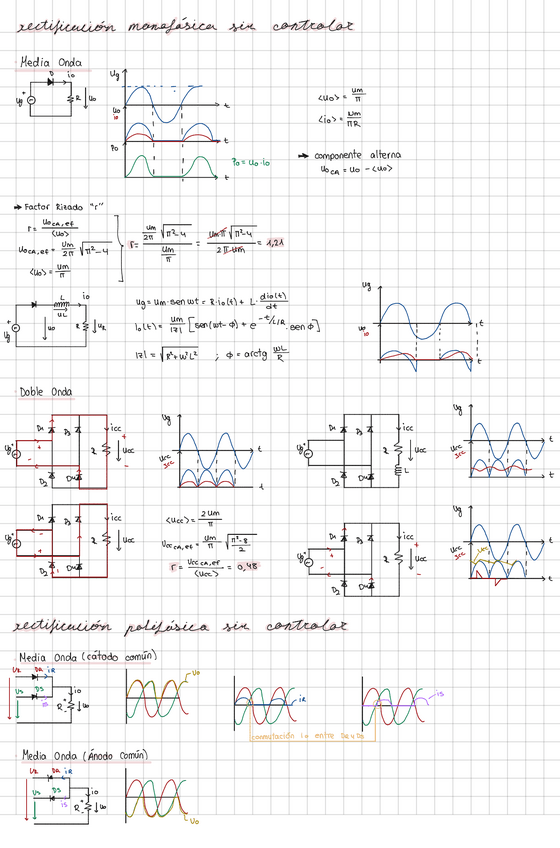 rectificación monofásica sin controlar
Media Onda
D
io
ug
R
uo
ug
t
uo
io
t
Po
t
Po = uo·io
<uo> = um/π
<io> = um/πR
→ componente alterna
uoCA = uo - <uo>
→ Factor Rizado "r"
r = uoCA,ef / <uo>
uoCA,ef = um/2π √π²-4
<uo> = um/π
r = um/2π √π²-4 / um/π = um·π √π²-4 / 2π·um = 1,21
L
io
uL
ug
uo
R
uR
ug = um·sen wt = R·io(t) + L· dio(t)/dt
io(t) = um/|Z| [sen(wt-ϕ) + e^-t/L/R · sen ϕ]
|Z| = √R²+W²L² ; ϕ = arctg WL/R
ug
t
uo
io
t
Doble Onda
D1
D3
icc
ug
R
ucc
D2
D4
ug
t
ucc
icc
t
D1
D3
icc
ug
R
ucc
L
D2
D4
ug
t
ucc
icc
t
D1
D3
icc
ug
R
ucc
D2
D4
<ucc> = 2um/π
uccCA,ef = um/π √π²-8/2
r = uccCA,ef / <ucc> = 0,48
D1
D3
icc
ug
ucc
D2
D4
ug
t
ucc
icc
t
rectificación polifásica sin controlar
Media Onda (cátodo común)
UR DR iR
US DS
iS
io
R
uo
uo
iR
iS
conmutación io entre DR y DS
Media Onda (Ánodo común)
UR DR iR
US DS
iS
io
R
uo
uo